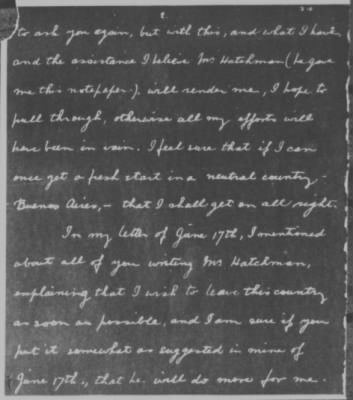 2.
to ask you again, but with this, and what I have
and the assistance I believe Mr Hatchman (he gave
me this notepaper.). will render me, I hope to
pull through, otherwise all my efforts will
have been in vain. I feel sure that if I can
once get a fresh start in a neutral country -
Buenos Aires, - that I shall get on all right.
In my letter of June 17th, I mentioned
about all of you writing Mr Hatchman,
explaining that I wish to leave this country
as soon as possible, and I am sure if you
put it somewhat as suggested in mine of
June 17th., that he. will do more for me.